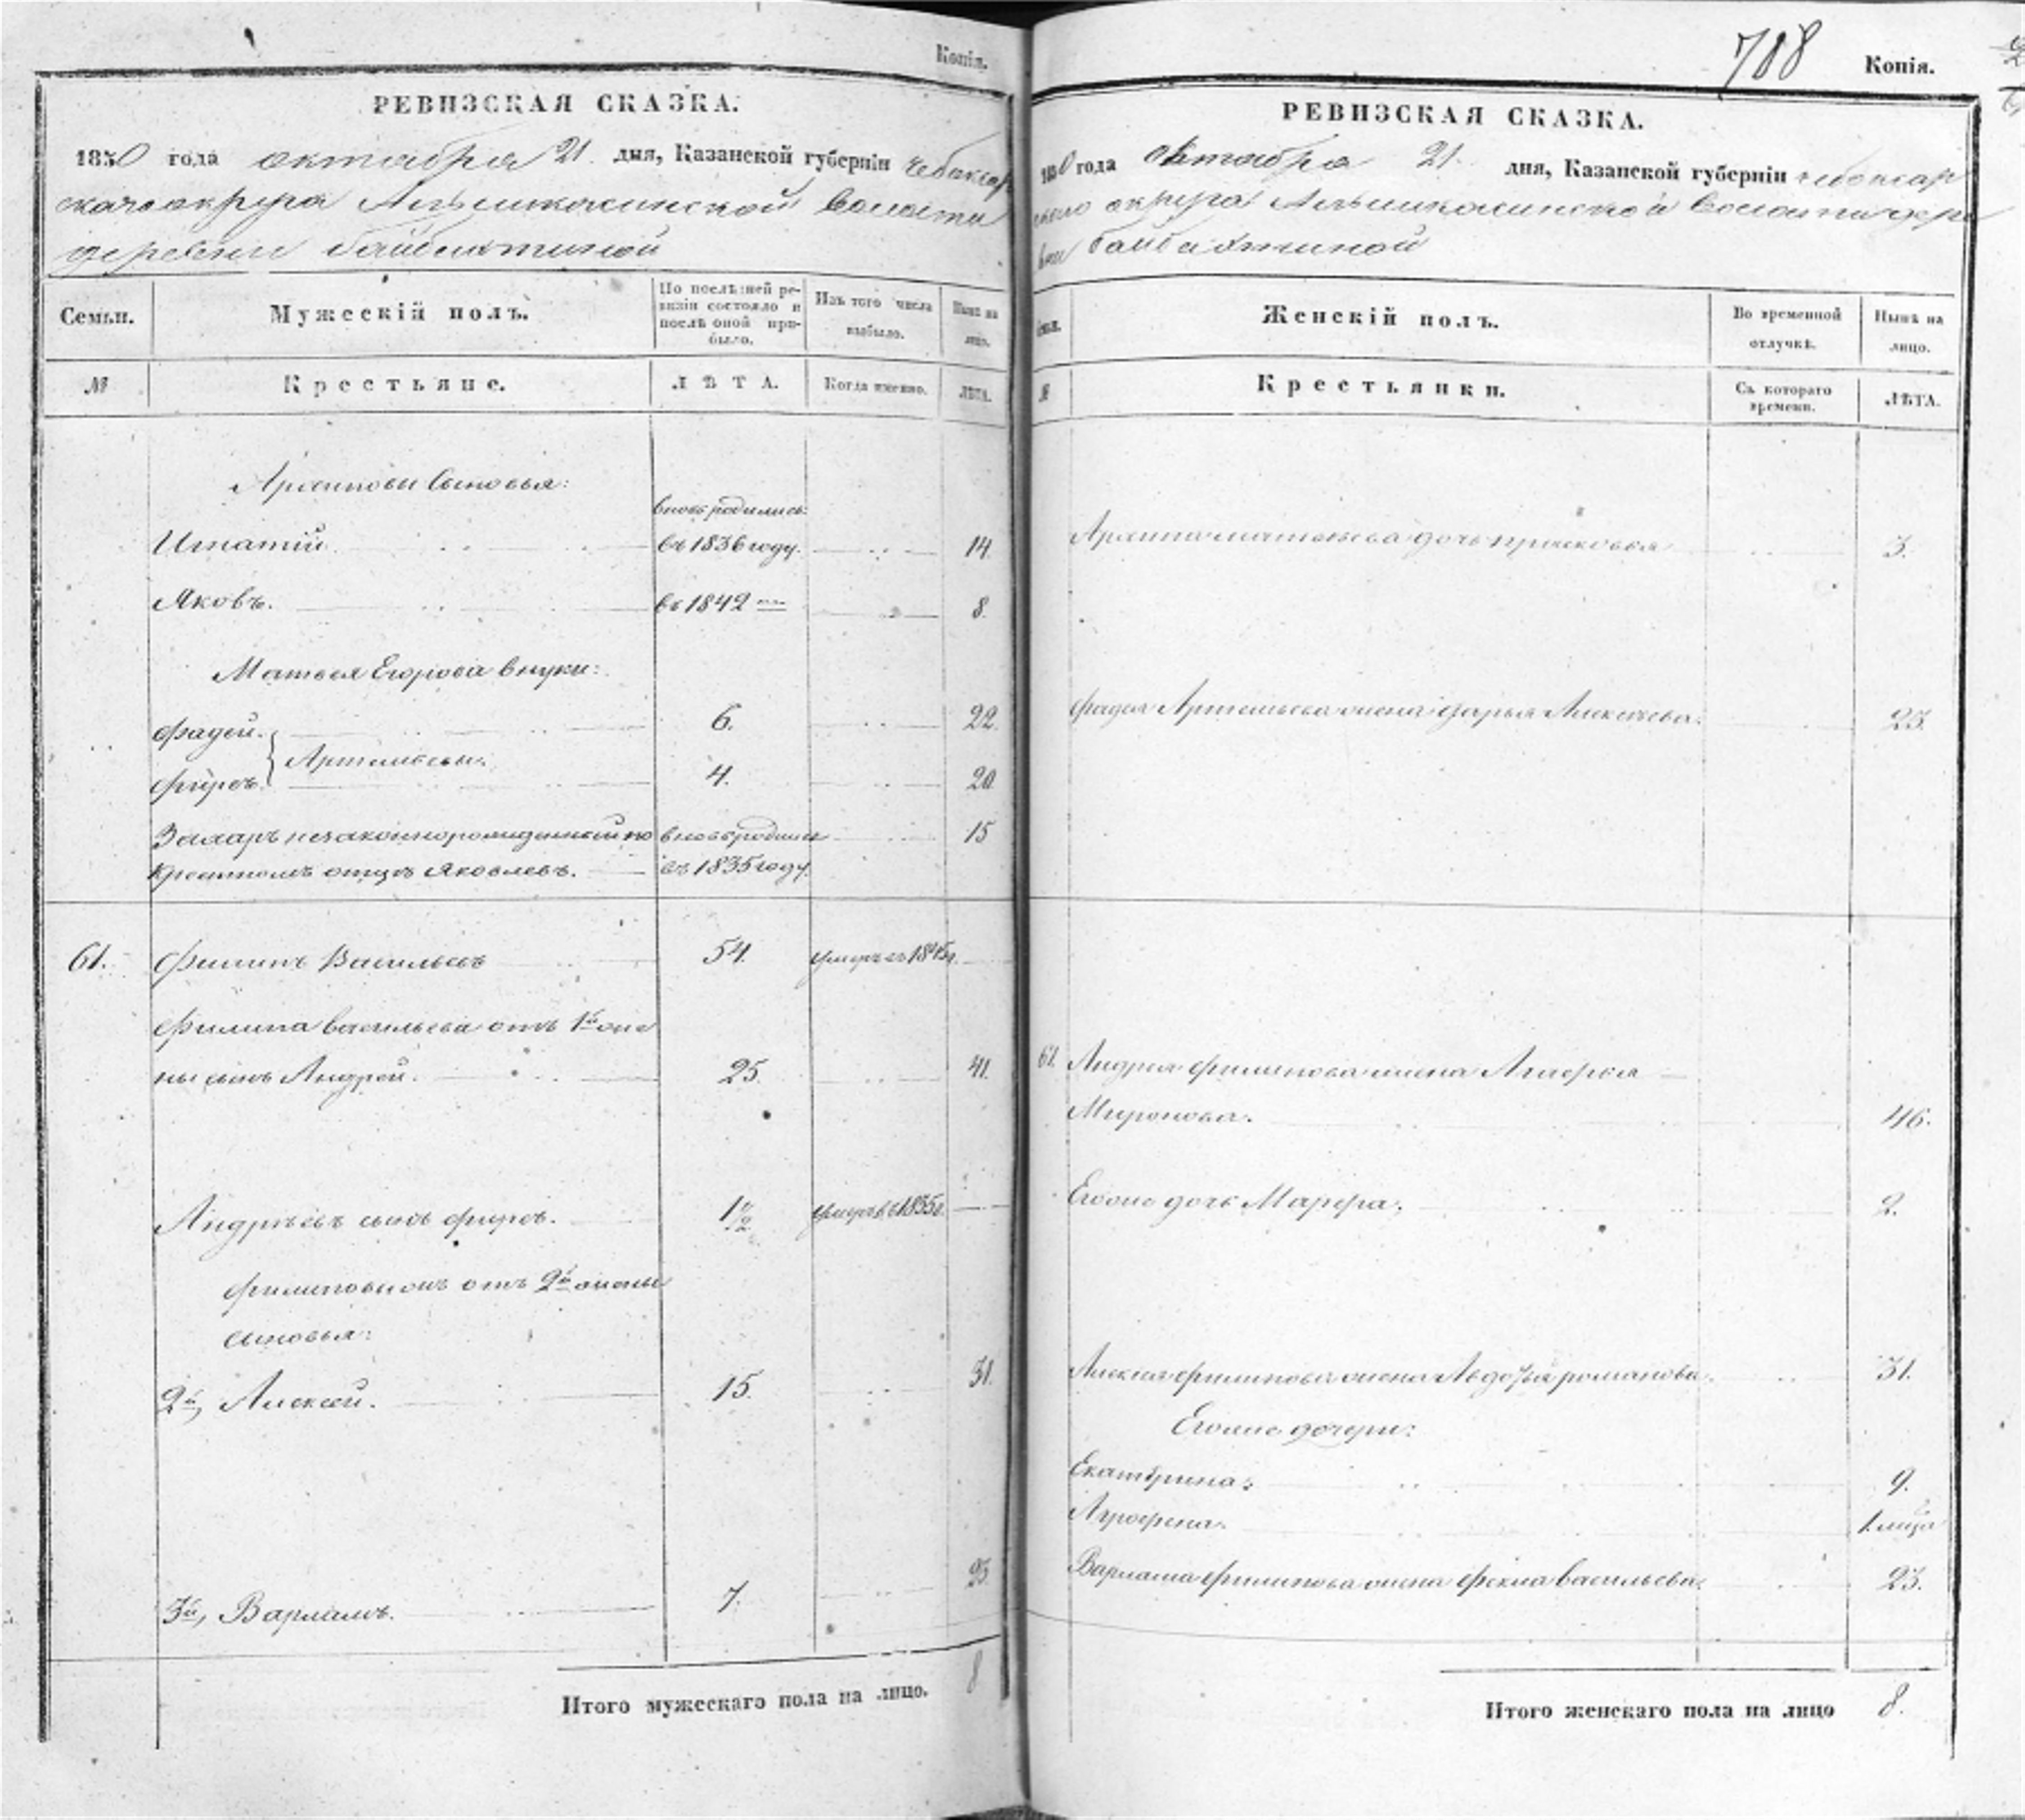 Копія.
РЕВИЗСКАЯ СКАЗКА.
1850 года октября 21. дня, Казанской губерніи Чебоксар
скаго округа Алымкасинской волости
деревни Байбахтиной
Семьи.
Мужескій полъ.
По послѣдней ре-
визіи состояло и
послѣ оной при-
было.
Изъ того числа
выбыло.
Нынѣ на
лицо.
№
Крестьяне.
ЛѢТА.
Когда именно.
ЛѢТА.
Архиповы сыновья:
вновь родились
Игнатій. въ 1836 году. 14.
Яковъ. въ 1842 — 8.
Матвея Егорова внуки:
Фадей. 6. 22.
Артемьевы.
Фиръ. 4. 20.
Захаръ незаконнорожденный по вновь родился 15
крестномъ отцѣ Яковлевъ. въ 1835 году.
61. Филипъ Васильевъ 54. умеръ въ 1845 г.
Филипа Васильева отъ 1й же
ны сынъ Андрей. 25. 41.
Андреевъ сынъ 1/2 умеръ въ 1835 г.
Филиповы отъ 2й жены
сыновья:
2й, Алексей. 15. 31.
3й, Варламъ. 7. 23
Итого мужескаго пола на лицо. 8
708
Копія.
РЕВИЗСКАЯ СКАЗКА.
1850 года Октября 21. дня, Казанской губерніи Чебоксар
скаго округа Алымкасинской волости дере
вни Байбахтиной
Семьи.
Женскій полъ.
Во временной
отлучкѣ.
Нынѣ на
лицо.
№
Крестьянки.
Съ котораго
времени.
ЛѢТА.
Архипа Матвеева дочь Прасковья 3.
Фадея Артемьева жена Дарья Алексеева. 23.
61. Андрея Филипова жена
Миронова. 46.
Егоже дочь Марфа. 2.
Алексея Филипова жена Авдотья Романова. 31.
Егоже дочери:
Екатерина. 9.
Агрофена. 1.
Варлама Филипова жена Фекла Васильева. 23.
Итого женскаго пола на лицо 8.